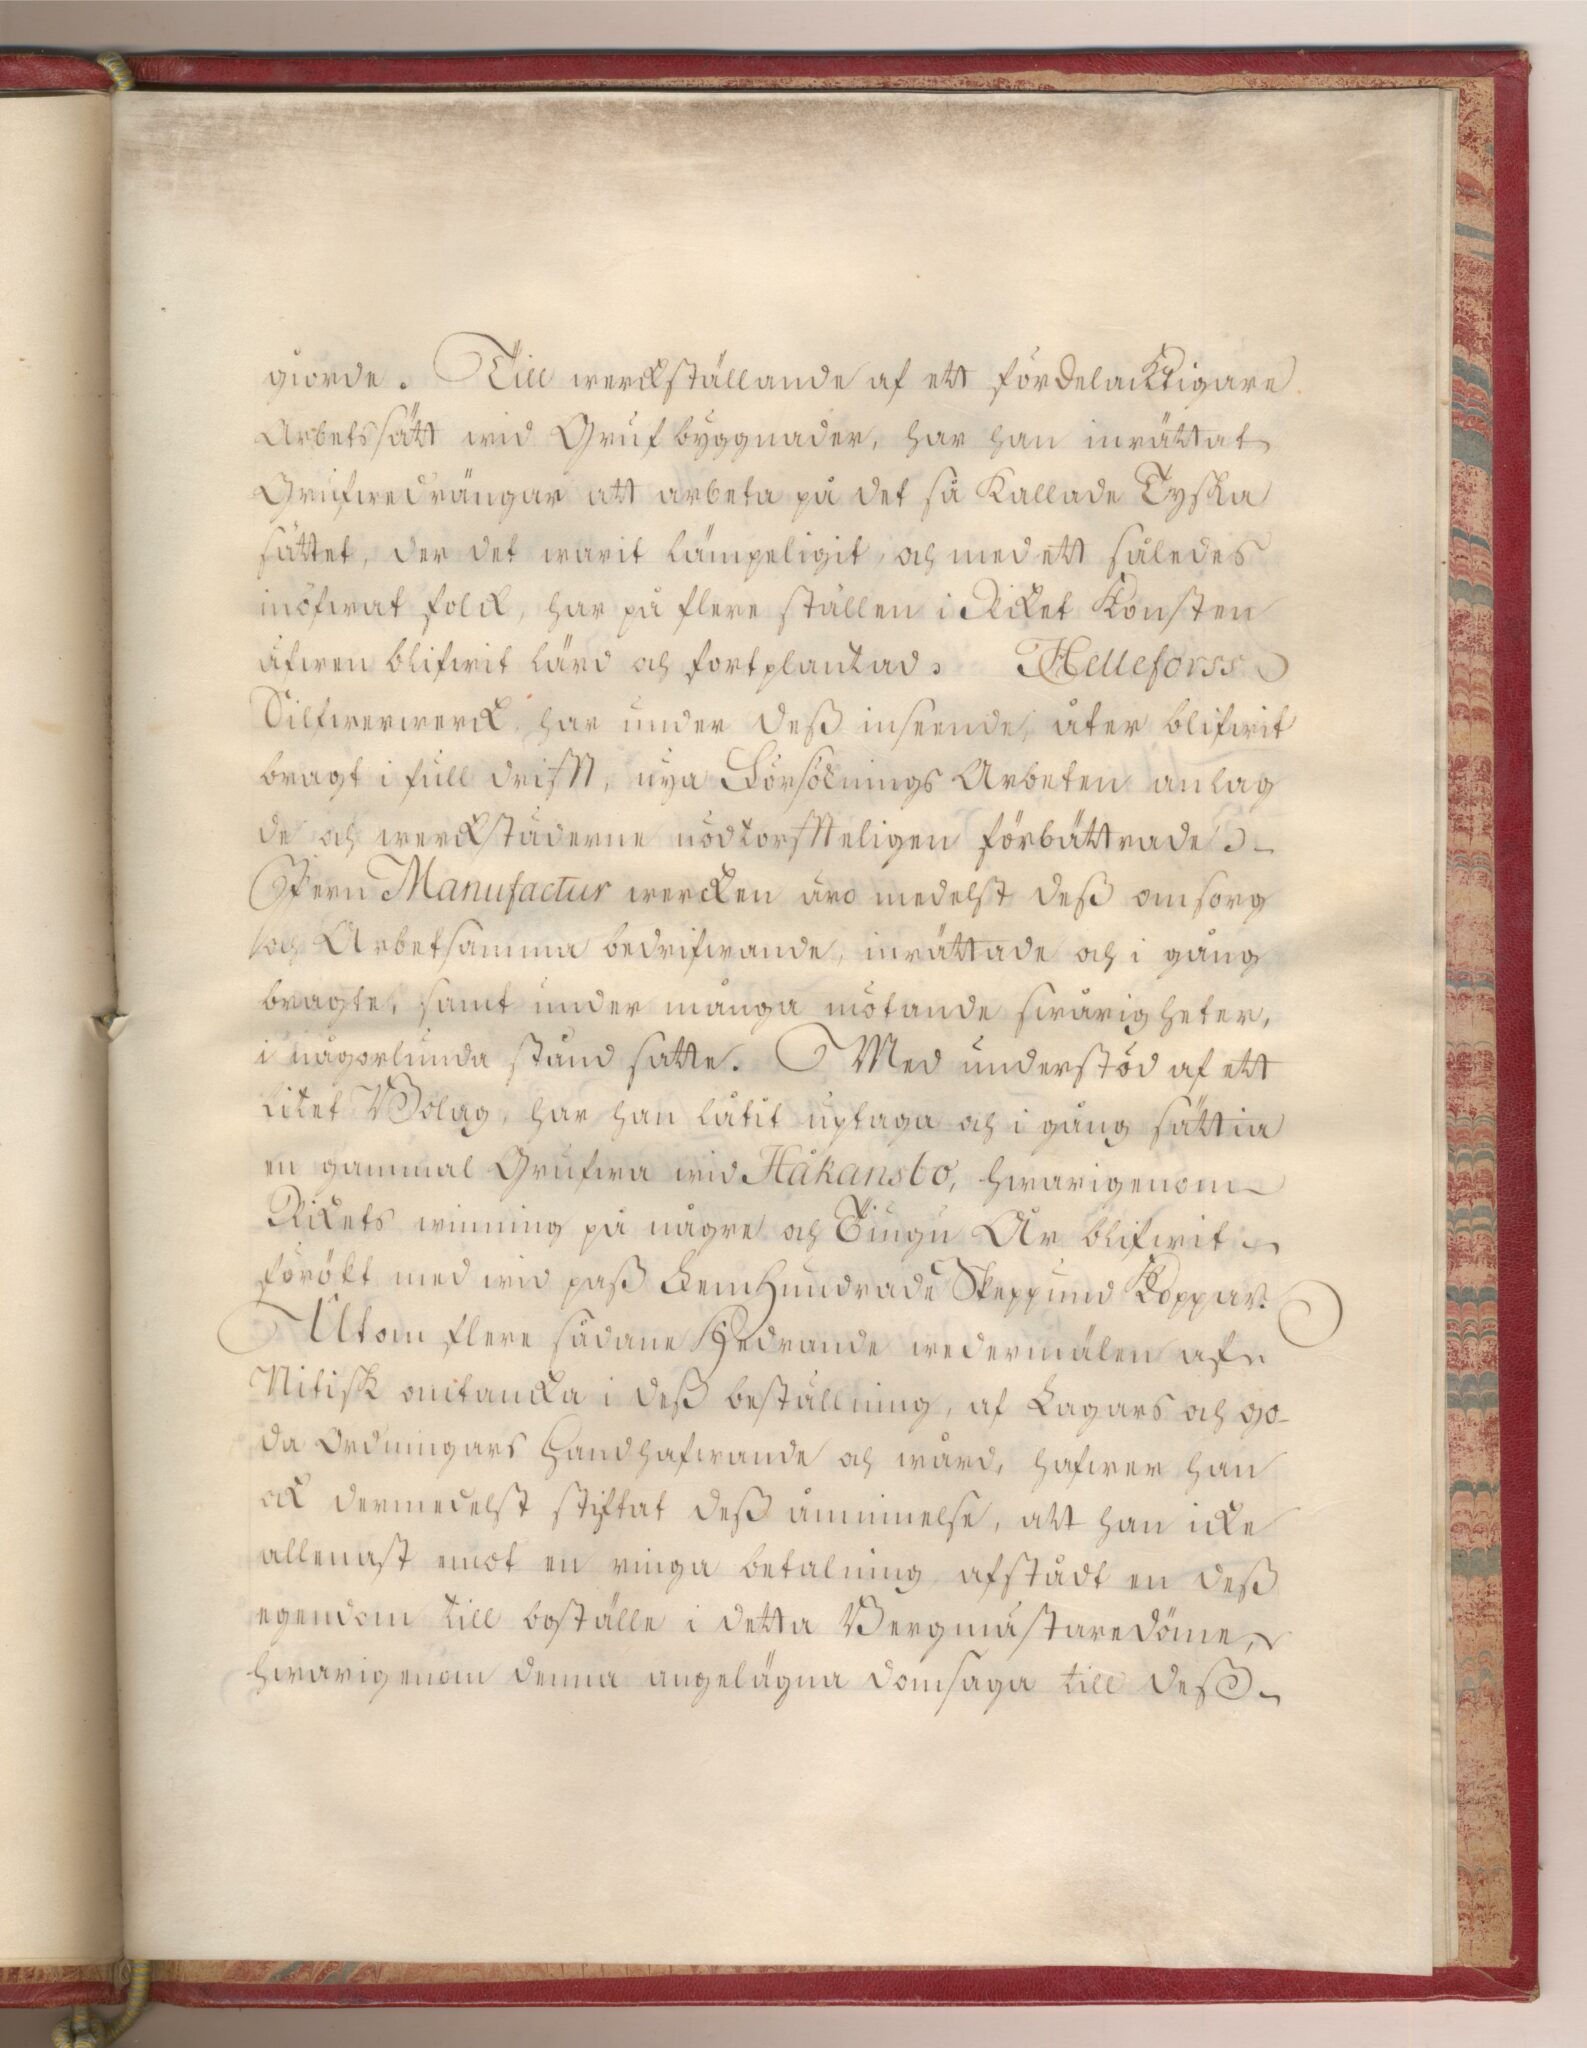 giorde. Till werckställande af ett fördelacktigare
Arbetssätt wid Grufbyggnader, har han inrättat
Grufwedrängar att arbeta på det så Kallade Tyska
sättet, der det warit lämpeligit, och med ett således
inöfwat folck, har på flere ställen i Riket Konsten
äfwen blifwit lärd och fortplantad. Helleforss
Silfwerwerck har under deß inseende, åter blifwit
bragt i full drifft, nya Försöknings Arbeten anlag
de och werckstäderne nödtorffteligen förbättrade.
Jern Manufactur wercken äro medelst deß omsorg
och Arbetsamma bedrifwande, inrättade och i gång
bragte, samt under många mötande swårigheter,
i någorlunda stånd satte. Med understöd af ett
litet Bolag, har han låtit uptaga och i gång sättia
en gammal Grufwa wid Håkansbo, hwarigenom
Rikets winning på någre och Tiugu År blifwit
förökt med wid paß Fem Hundrade Skeppund Koppar.
Utom flere sådane Hedrande wedermälen af
Nitisk omtancka i deß beställning, af Lagars och go-
da Ordningars Handhafwande och wård, hafwer han
ock dermedelst stiftat deß åminnelse, att han icke
allenast emot en ringa betalning afstådt en deß
egendom till boställe i detta Bergmästaredöme,
hwarigenom denna angelägna domsaga till deß